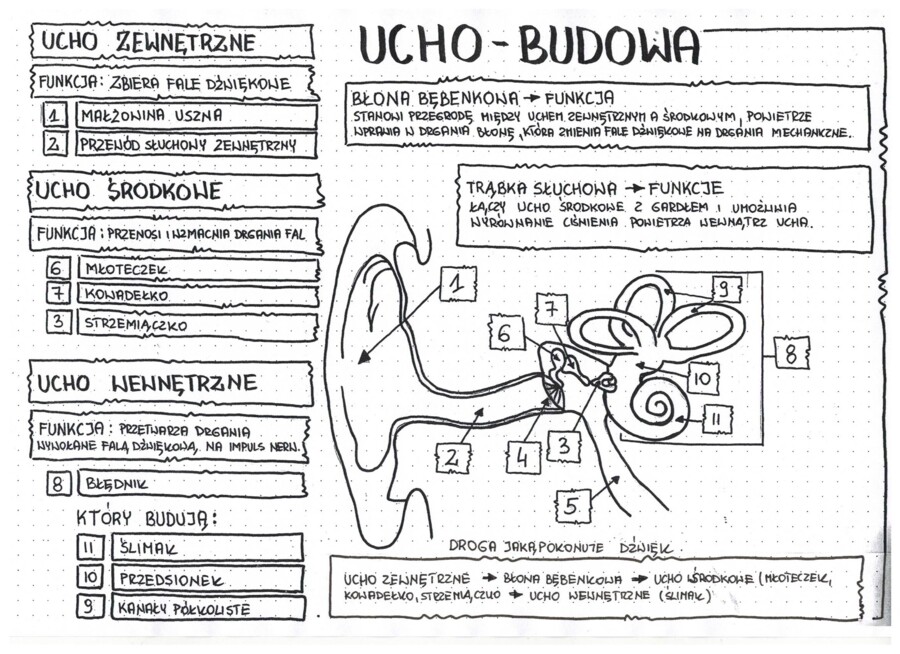 UCHO ZEWNĘTRZNE
FUNKCJA: ZBIERA FALE DŹWIĘKOWE
1 MAŁŻOWINA USZNA
2 PRZEWÓD SŁUCHOWY ZEWNĘTRZNY
UCHO ŚRODKOWE
FUNKCJA: PRZENOSI I WZMACNIA DRGANIA FAL
6 MŁOTECZEK
7 KOWADEŁKO
3 STRZEMIĄCZKO
UCHO WEWNĘTRZNE
FUNKCJA: PRZETWARZA DRGANIA
WYWOŁANE FALĄ DŹWIĘKOWĄ, NA IMPULS NERW.
8 BŁĘDNIK
KTÓRY BUDUJĄ:
11 ŚLIMAK
10 PRZEDSIONEK
9 KANAŁY PÓŁKOLISTE
UCHO - BUDOWA
BŁONA BĘBENKOWA → FUNKCJA
STANOWI PRZEGRODĘ MIĘDZY UCHEM ZEWNĘTRZNYM A ŚRODKOWYM, POWIETRZE
WPRAWIA W DRGANIA BŁONĘ, KTÓRA ZMIENIA FALE DŹWIĘKOWE NA DRGANIA MECHANICZNE.
TRĄBKA SŁUCHOWA → FUNKCJE
ŁĄCZY UCHO ŚRODKOWE Z GARDŁEM I UMOŻLIWIA
WYRÓWNANIE CIŚNIENIA POWIETRZA WEWNĄTRZ UCHA.
1
9
7
6
8
10
11
2
4
3
5
DROGA JAKĄ POKONUJE DŹWIĘK.
UCHO ZEWNĘTRZNE → BŁONA BĘBENKOWA → UCHO ŚRODKOWE (MŁOTECZEK,
KOWADEŁKO, STRZEMIĄCZKO → UCHO WEWNĘTRZNE (ŚLIMAK)